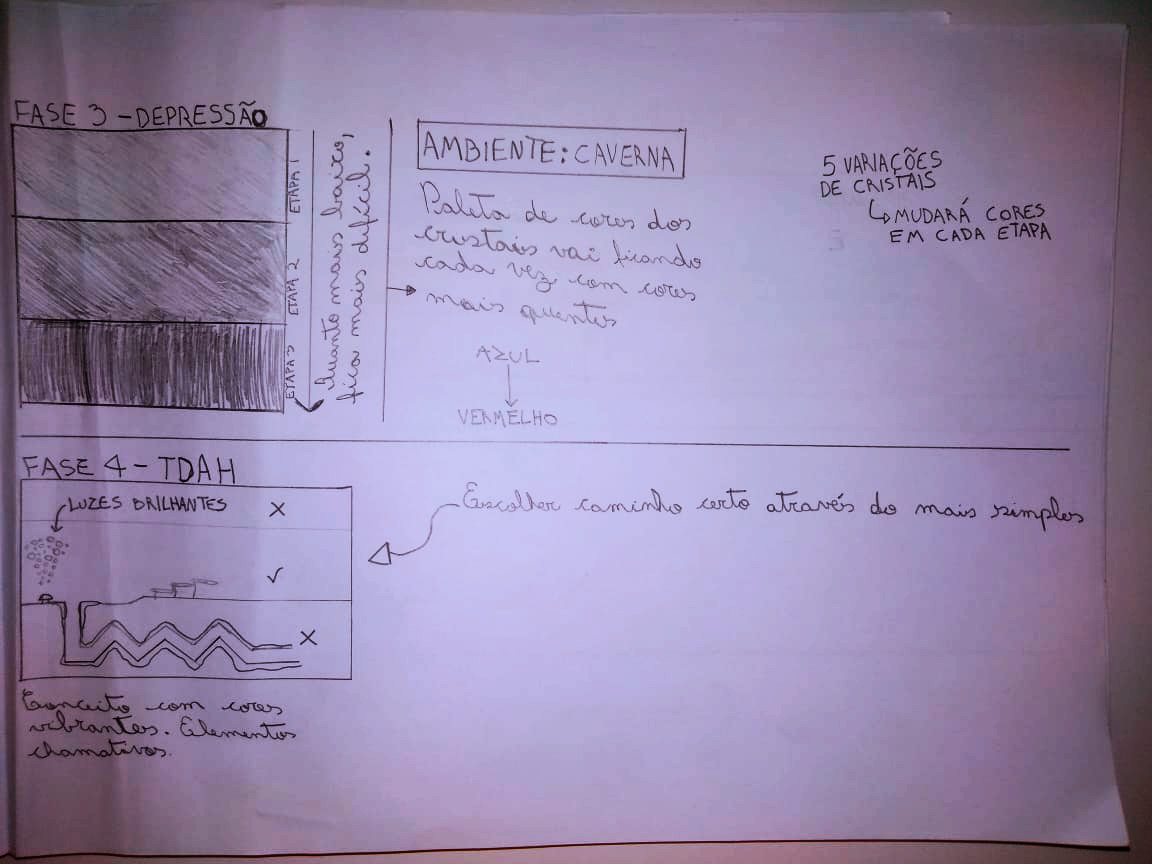 FASE 3 - DEPRESSÃO
ETAPA 1
ETAPA 2
ETAPA 3
Quanto mais baixo,
fica mais difícil.
AMBIENTE: CAVERNA
Paleta de cores dos
cristais vai ficando
cada vez com cores
mais quentes
AZUL
VERMELHO
5 VARIAÇÕES
DE CRISTAIS
MUDARÁ CORES
EM CADA ETAPA
FASE 4 - TDAH
LUZES BRILHANTES
Escolher caminho certo através do mais simples
Conceito com cores
vibrantes. Elementos
chamativos.